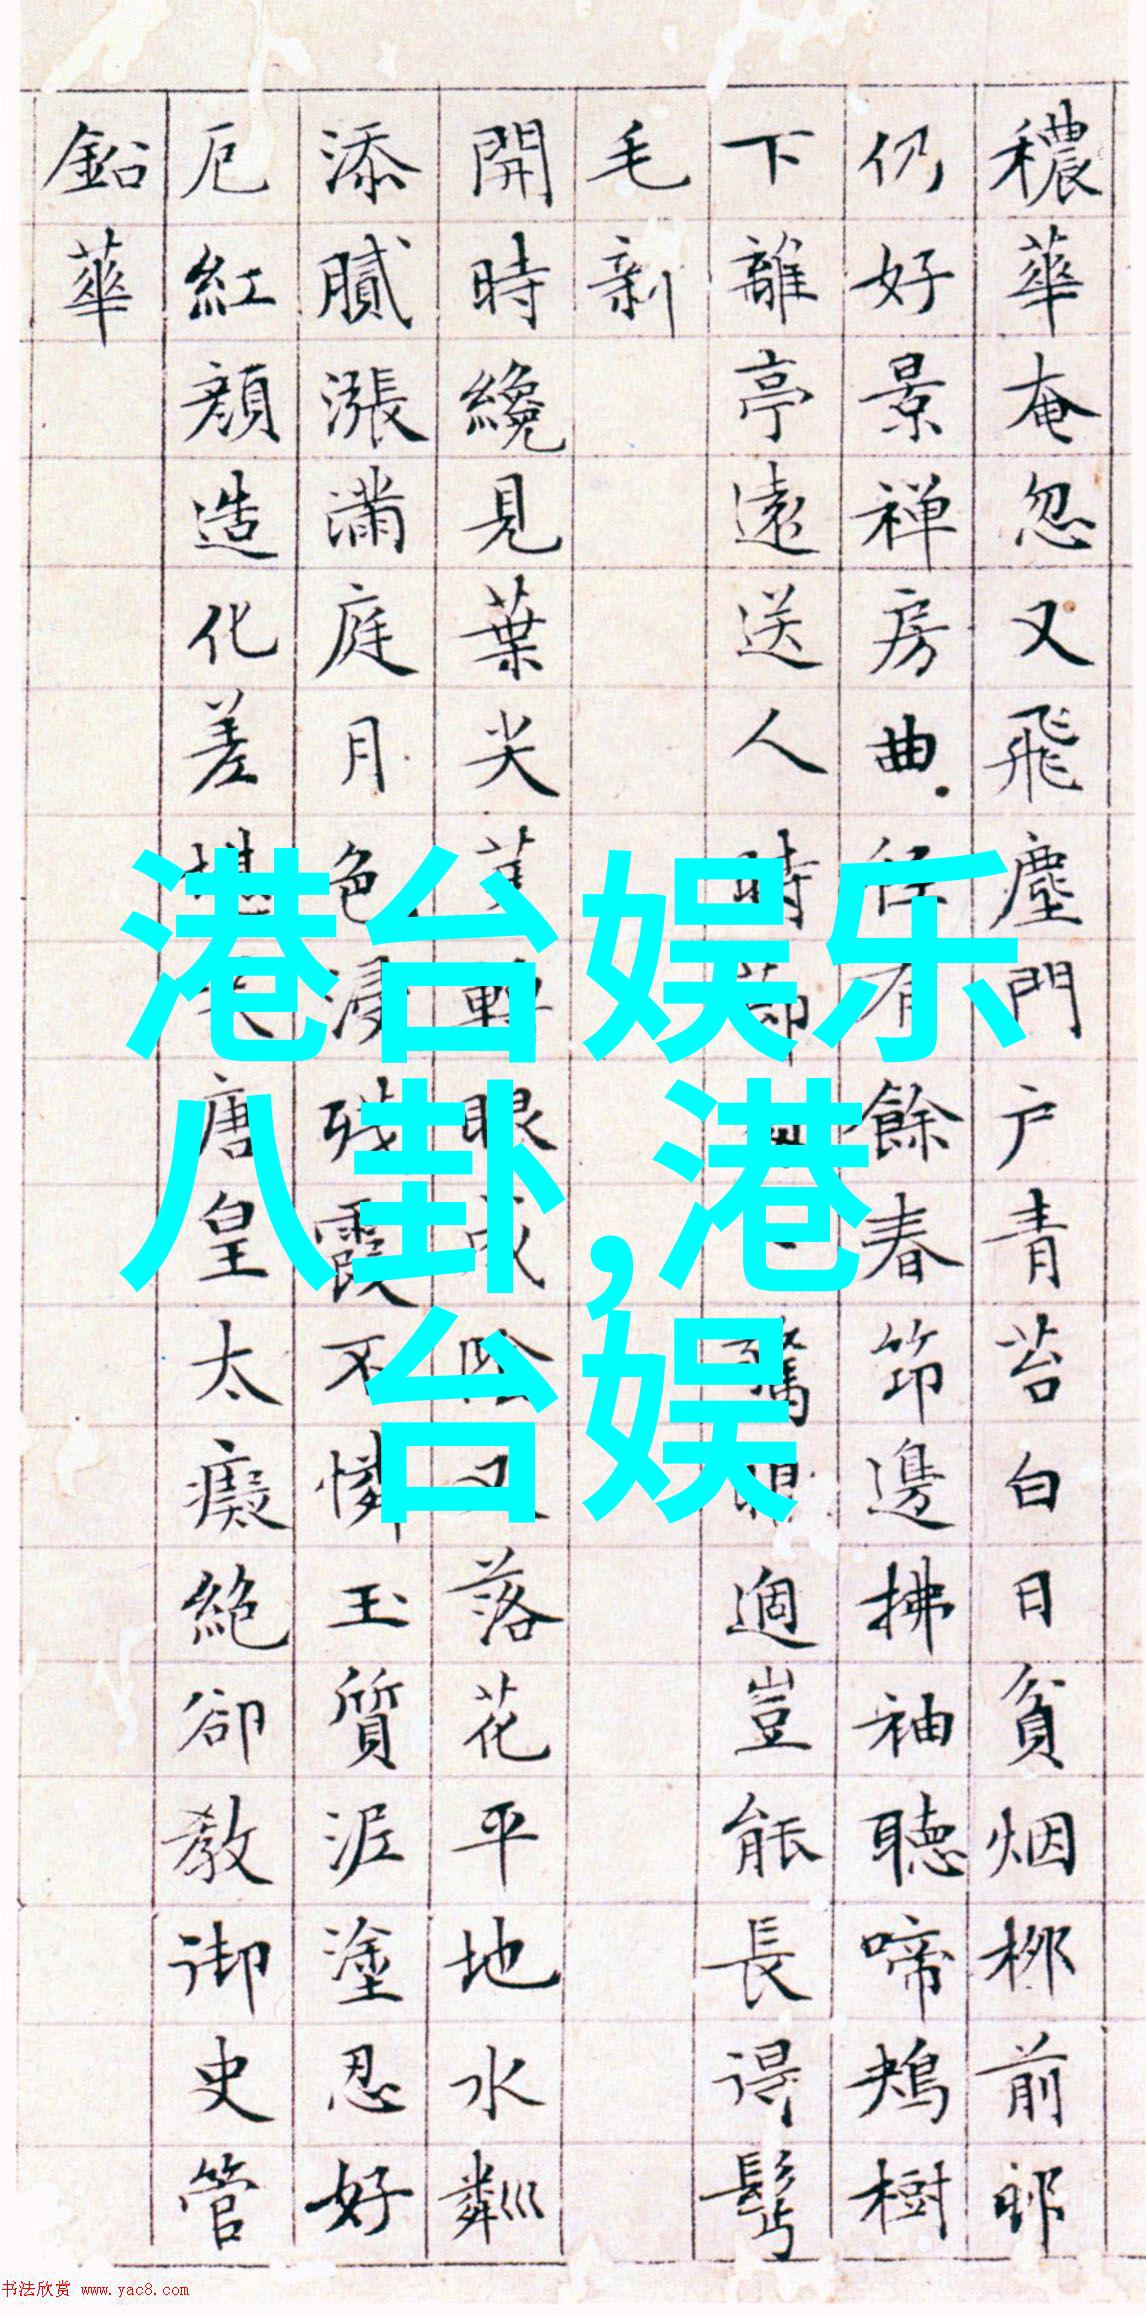 穠華奄忽又飛塵門户青苔白日貧烟柳前邨
仍好景禅房曲任有餘春笻邊拂袖聽啼鴂樹
下離亭遠送人時節適豈能長得鬢
毛新
開時纔見葉尖轉眼成陰又落花平地水粼巛
添膩漲滿庭月色浸殘霞不憐玉質泥塗忍好
厄紅顔造化差堪笑唐皇太癡絶卻教御史管
鉛華
港台娱乐
八卦,港
台娱
书法欣赏 www.yac8.com